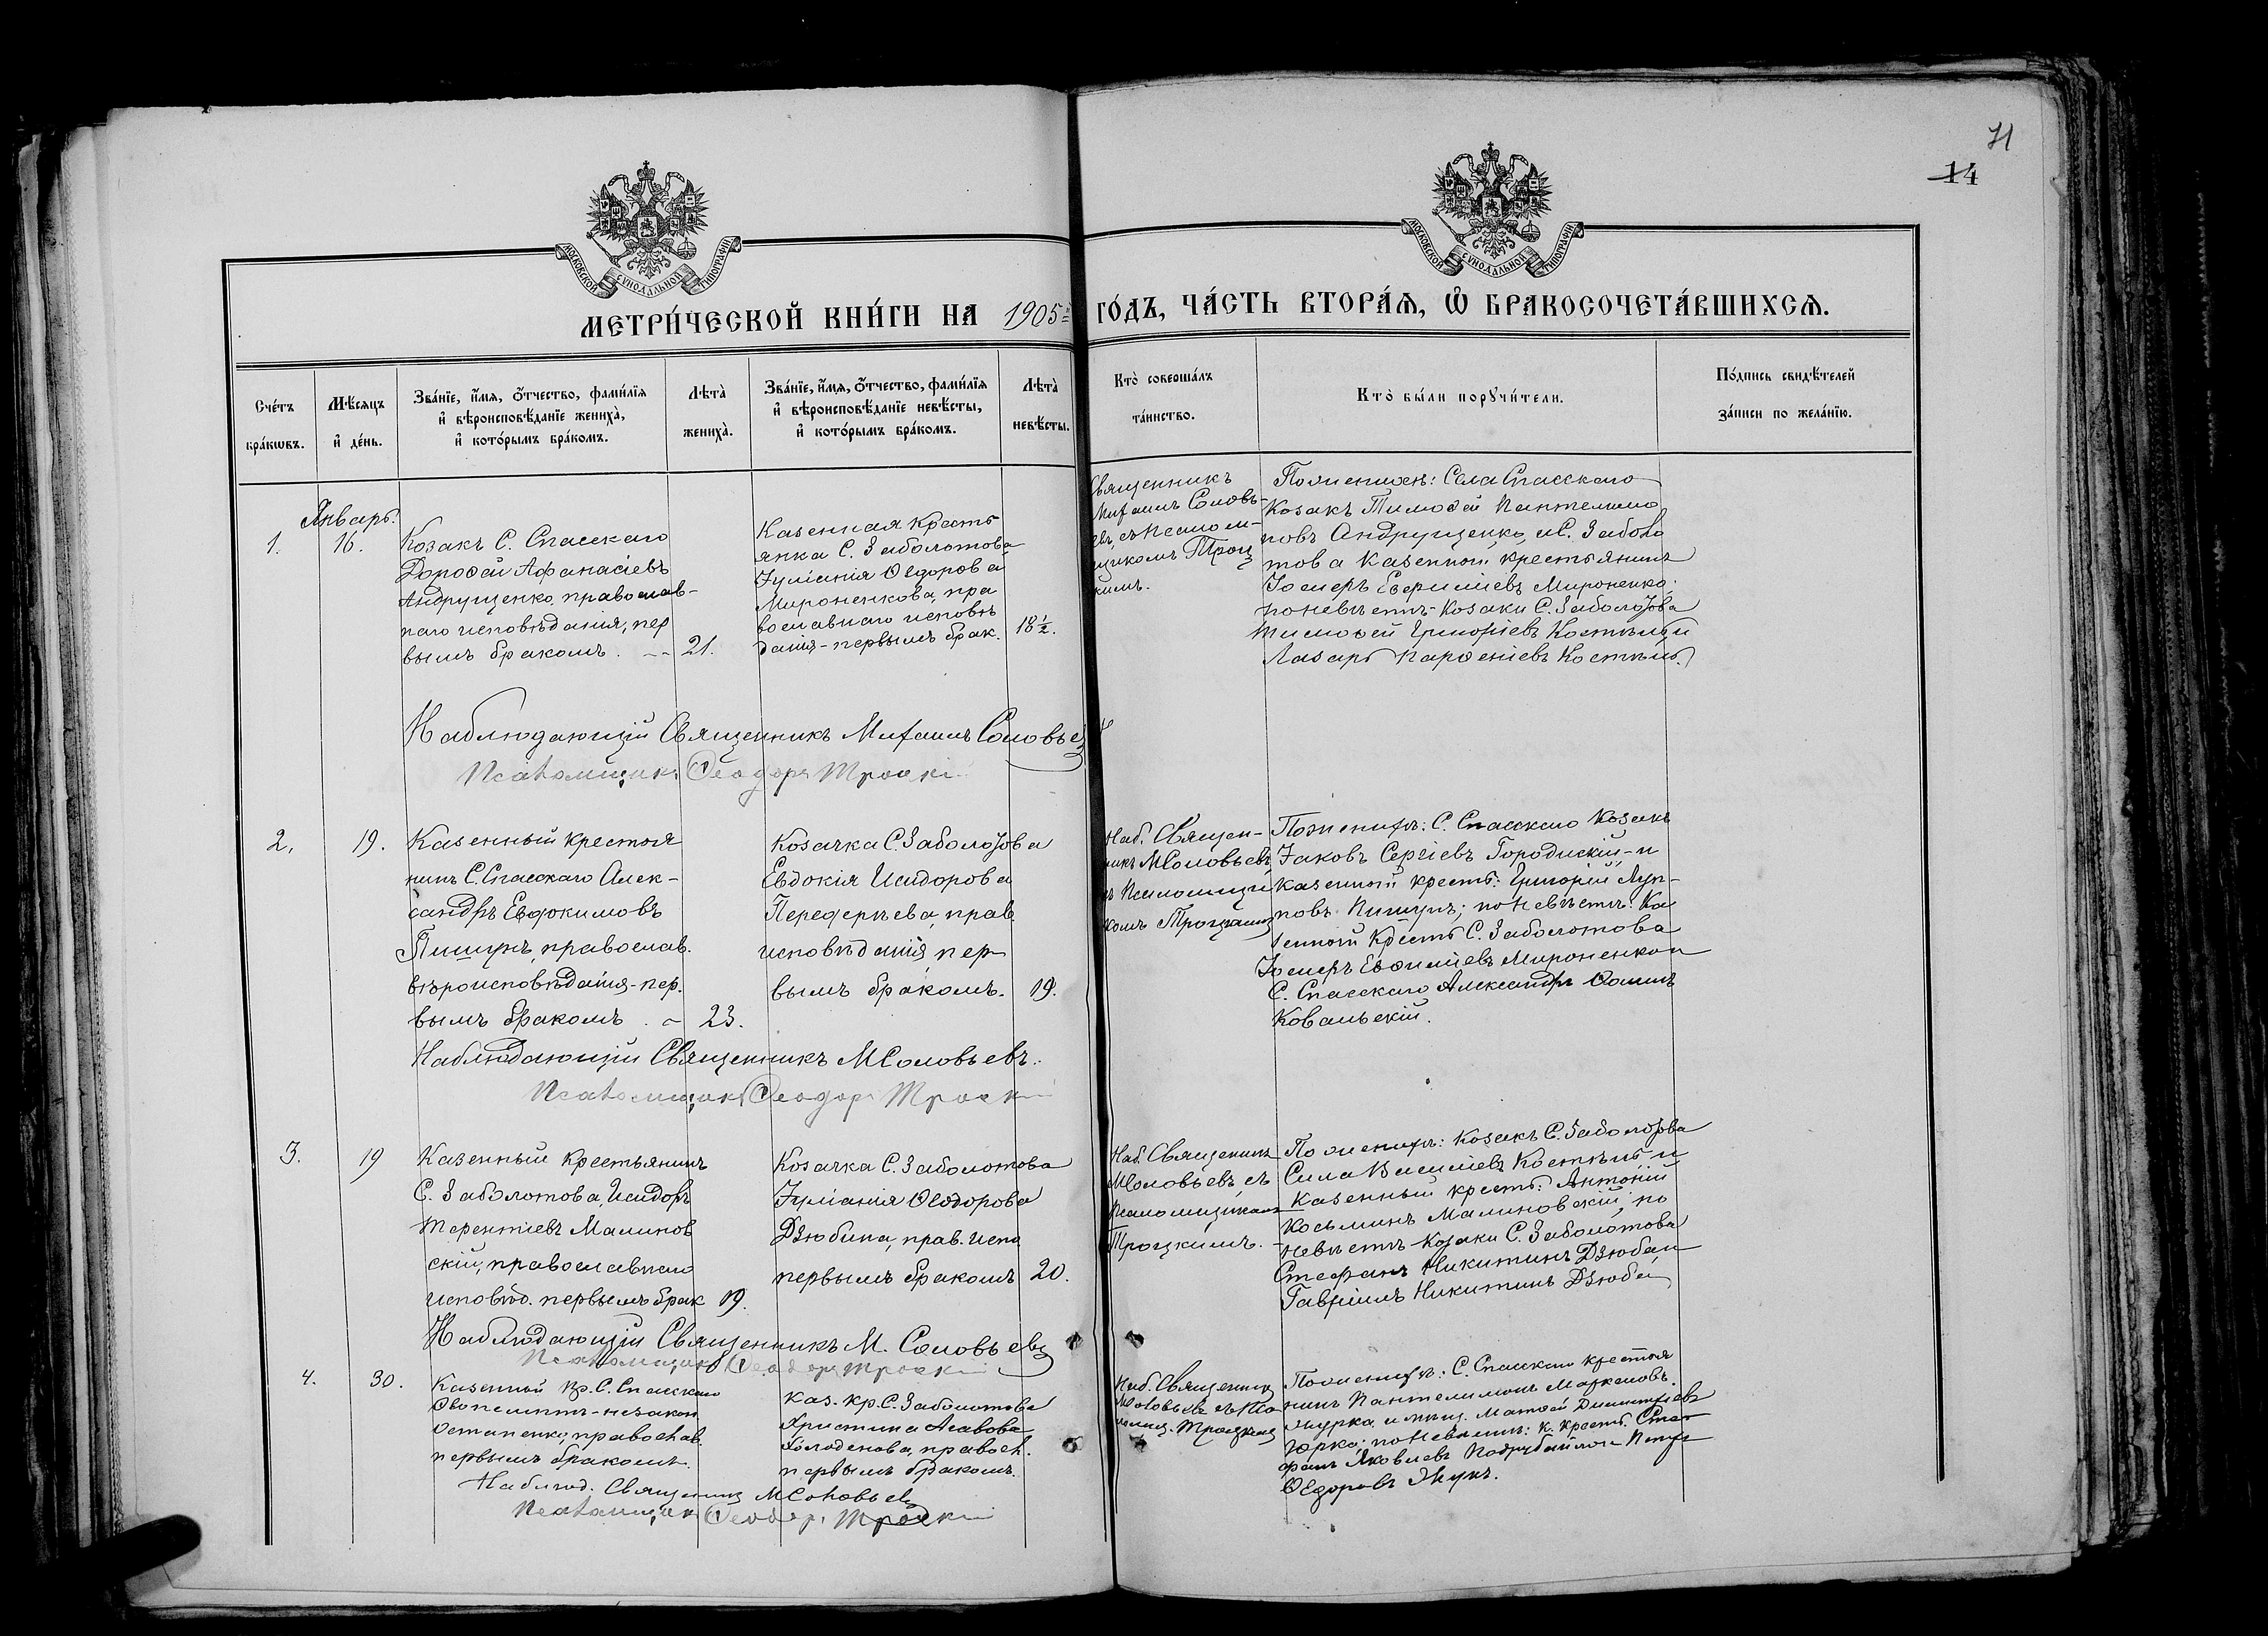 71
14
МОСКОВСКОЙ СУНОДАЛЬНОЙ ТИПОГРАФІИ
МОСКОВСКОЙ СУНОДАЛЬНОЙ ТИПОГРАФІИ
МЕТРИ́ЧЕСКОЙ КНИ́ГИ НА 1905й ГО́ДЪ, ЧА́СТЬ ВТОРА́Ѧ, Ѽ БРАКОСОЧЕТА́ВШИХСѦ.
Сче́тъ
бра́кѡвъ.
Мѣ́сѧцъ
и҆ де́нь.
Зва́нїе, и҆́мѧ, ѻ҆́тчество, фами́лїѧ
и҆ вѣроисповѣ́данїе жениха̀,
и҆ кото́рымъ бра́комъ.
Лѣта̀
жениха̀.
Зва́нїе, и҆́мѧ, ѻ҆́тчество, фами́лїѧ
и҆ вѣроисповѣ́данїе невѣ́сты,
и҆ кото́рымъ бра́комъ.
Лѣта̀
невѣ́сты.
Кто̀ соверша́лъ
та́инство.
Кто̀ бы́ли порꙋчи́тели.
По́дпись свидѣ́телей
за́писи по жела́нїю.
Январь.
1.
16.
Козакъ С. Спасскаго
Дороѳей Аѳанасіевъ
Андрущенко, православ-
наго исповѣданія, пер
вымъ бракомъ.
21.
Казенная кресть
янка С. Заболотова
Іуліанія Ѳеодорова
Мироненкова, пра
вославнаго исповѣ
данія - первымъ брак.
18 ½.
Священникъ
Михаилъ Соловь-
евъ, съ псалом-
щикомъ Троц
кимъ.
По женихѣ: Села Спасскаго
Козакъ Тимоѳей Пантелимо
новъ Андрущенко, и С. Заболо
това казенный крестьянинъ
Евфиміевъ Мироненко;
по невѣстѣ - Козаки С. Заболотова
Тимоѳей Григоріевъ Костыль и
Лазарь Парѳеніевъ Костыль.
Наблюдающій Священникъ Михаилъ Соловьевъ
Псаломщикъ Ѳеодоръ Троцкій
2.
19.
Казенный крестья
нинъ С. Спасскаго Алек-
сандръ Евдокимовъ
Пишунъ, православ.
вѣроисповѣданія - пер.
вымъ бракомъ.
23.
Козачка С. Заболотова
Евдокія Исидорова
Передеріева, прав.
исповѣданія, пер
вымъ бракомъ.
19.
Наб. Священ-
никъ М Соловьевъ
съ Псаломщи
комъ Троцкимъ
По женихѣ: С. Спасскаго Козакъ
Іаковъ Сергіевъ Городискій - и
казенный крест: Григорій Луп-
повъ Пишунъ; по невѣстѣ: Ка
зенный крест С. Заболотова
Евфиміевъ Мироненко и
С. Спасскаго Александръ Ѳоминъ
Ковальскій.
Наблюдающій Священникъ М Соловьевъ.
Псаломщикъ Ѳеодоръ Троцкій
3.
19
Казенный Крестьянинъ
С. Заболотова, Исидоръ
Терентіевъ Малинов
скій, православнаго
исповѣд. первымъ брак
19.
Козачка С. Заболотова
Іуліанія Ѳеодорова
Дзюбина, прав. испо
первымъ бракомъ
20.
Наб. Священникъ
М Соловьевъ, съ
Псаломщикомъ
Троцкимъ.
По женихѣ: Козакъ С. Заболотова
Сила Василіевъ Костыль и
казенный крест: Антоній
Косьминъ Малиновскій; по
невѣстѣ - Козаки С. Заболотова
Стефанъ Никитинъ Дзюба, и
Гавріилъ Никитинъ Дзюба
Наблюдающій Священникъ М. Соловьевъ
Псаломщикъ Ѳеодоръ Троцкій
4.
30.
Казенный Кр. С. Спасскаго
незакон
Остапенко, православ.
первымъ бракомъ.
каз. кр. С. Заболотова
Христина Агавова
Колоденова, правосл.
первымъ бракомъ.
Наб. Священникъ
М Соловьевъ съ Пса
ломщ. Троцкимъ
По женихѣ: С. Спасскаго крестья
нинъ Пантелимонъ Маркеловъ
и мѣщ. Матѳей Димитріевъ
Юрко; по невѣстѣ: к. крест. Сте
фанъ Яковлевъ и Петръ
Ѳедоровъ Жукъ.
Наблюд. Священникъ М Соловьевъ
Псаломщикъ Ѳеодоръ Троцкій